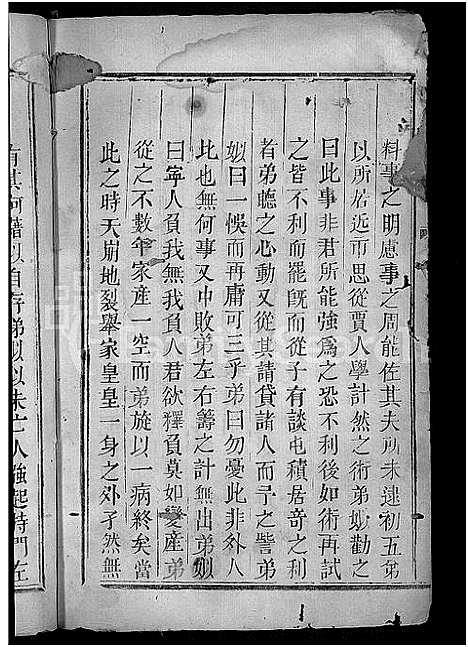 料事之明慮事之周能佐其夫所未逮初五弟
以所居近市思從賈人學計然之術弟姒勸之
曰此事非君所能強為之恐不利後如術再試
之皆不利而罷旣而從子有談屯積居奇之利
者弟聽之心動又從其請貸諸人而予之訾弟
姒曰一悞而再庸可三乎弟曰勿憂此非外人
比也無何事又中敗弟左右籌之計無出弟姒
曰寜人負我無我負人君欲釋負莫如變產弟
從之不數年家產一空而弟旋以一病終矣當
此之時天崩地裂舉家皇皇一身之外孑然無
有其何藉以自存弟姒以未亡人強起持門左